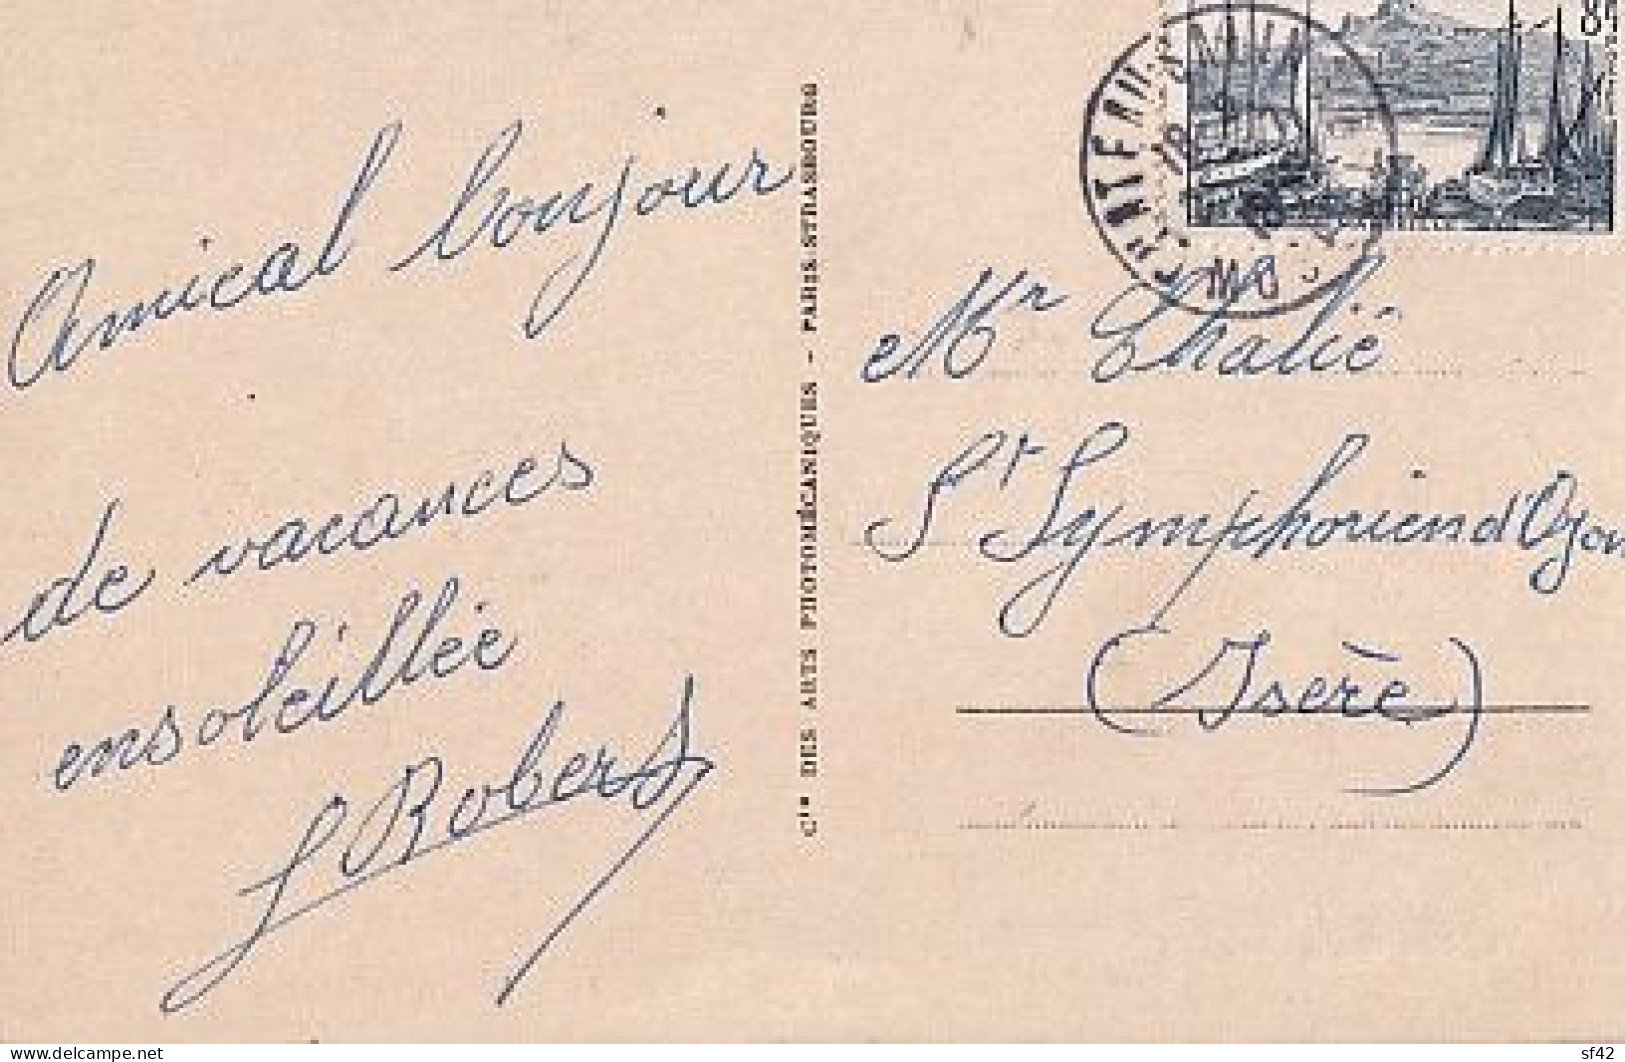 Amical bonjour
de vacances
ensoleillée
L Robert
Cie DES ARTS PHOTOMÉCANIQUES - PARIS-STRASBOURG
Mr Chalié
St Symphorien d'Ozon
(Isère)
https://www.delcampe.net
sf42